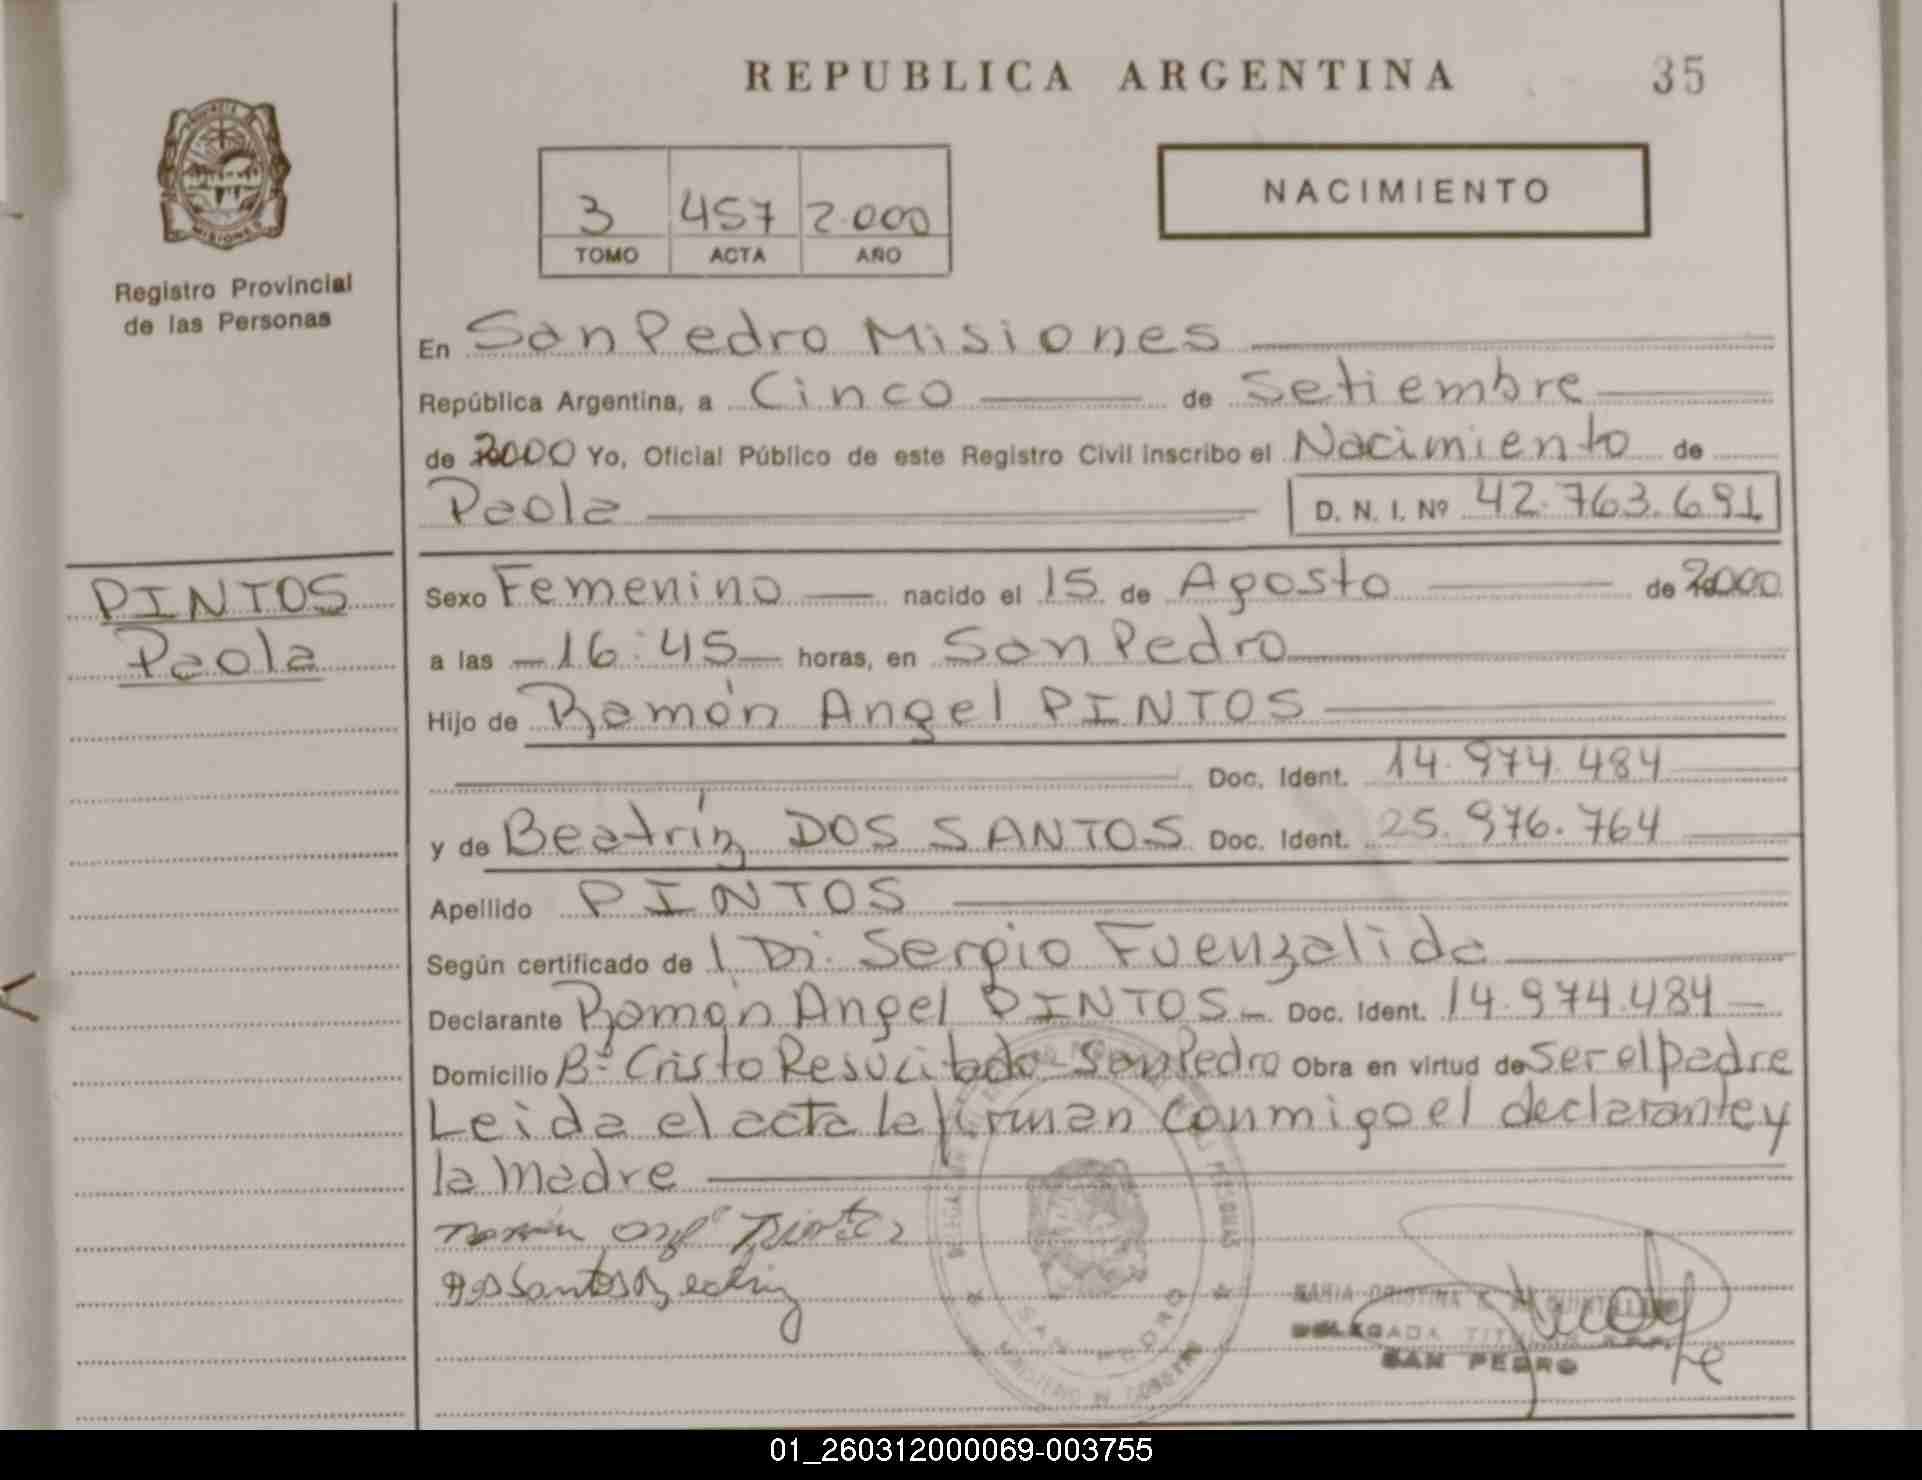 REPUBLICA ARGENTINA
35
NACIMIENTO
3 457 2.000
TOMO ACTA AÑO
Registro Provincial
de las Personas
En San Pedro Misiones
República Argentina, a Cinco de Setiembre
de 2000 Yo, Oficial Público de este Registro Civil inscribo el Nacimiento de
Paola D. N. I. Nº 42.763.691
PINTOS
Paola
Sexo Femenino nacido el 15 de Agosto de 2000
a las 16:45 horas, en San Pedro
Hijo de Ramón Angel PINTOS
Doc. Ident. 14.974.484
y de Beatríz DOS SANTOS Doc. Ident. 25.976.764
Apellido PINTOS
Según certificado de Sergio Fuenzalida
Declarante Ramón Angel PINTOS Doc. Ident. 14.974.484
Domicilio Bº Cristo Resucitado San Pedro Obra en virtud de ser el padre
Leida el acta la firman conmigo el declarante y
la madre
Dos Santos Beatriz
SAN PEDRO
MARIA CRISTINA
DELEGADA TITULAR
SAN PEDRO
01_260312000069-003755